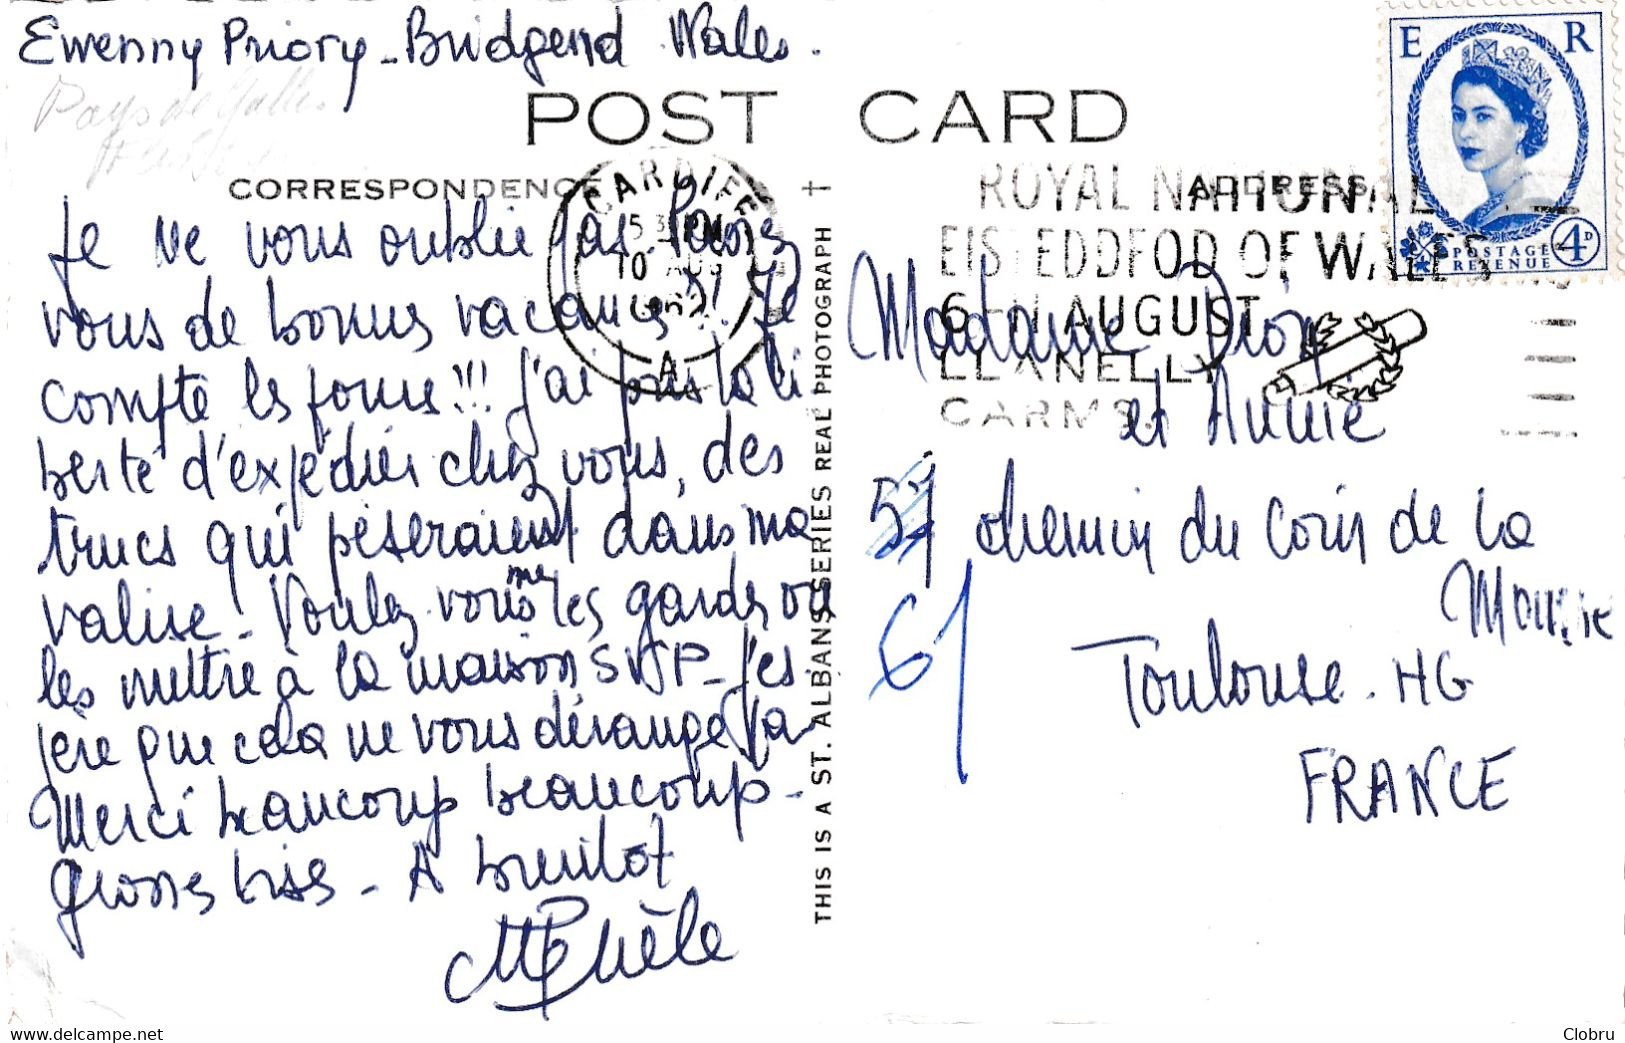 Ewenny Priory - Bridgend Wales.
Pays de Galles
POST CARD
CORRESPONDENCE
ADDRESS
CARDIFF
10 AUG
A
ROYAL NATIONAL
EISTEDDFOD OF WALES
6-11 AUGUST
LLANELLY
CARMS.
E R
POSTAGE
REVENUE
4D
Je ne vous oublie pas.
vous de bonnes vacances ? Je
compte les jours !!! J'ai pris la li
berté d'expédier chez vous, des
trucs qui pèseraient dans ma
valise. Voulez vous me les garder ou
les mettre à la maison SVP - J'es
père que cela ne vous dérange pas
Merci beaucoup beaucoup -
Grosses bises - A bientôt
Michèle
THIS IS A ST. ALBANS SERIES REAL PHOTOGRAPH
Madame Dion
et Annie
57 chemin du Coin de la
61
Moure
Toulouse. HG
FRANCE
www.delcampe.net
Clobru